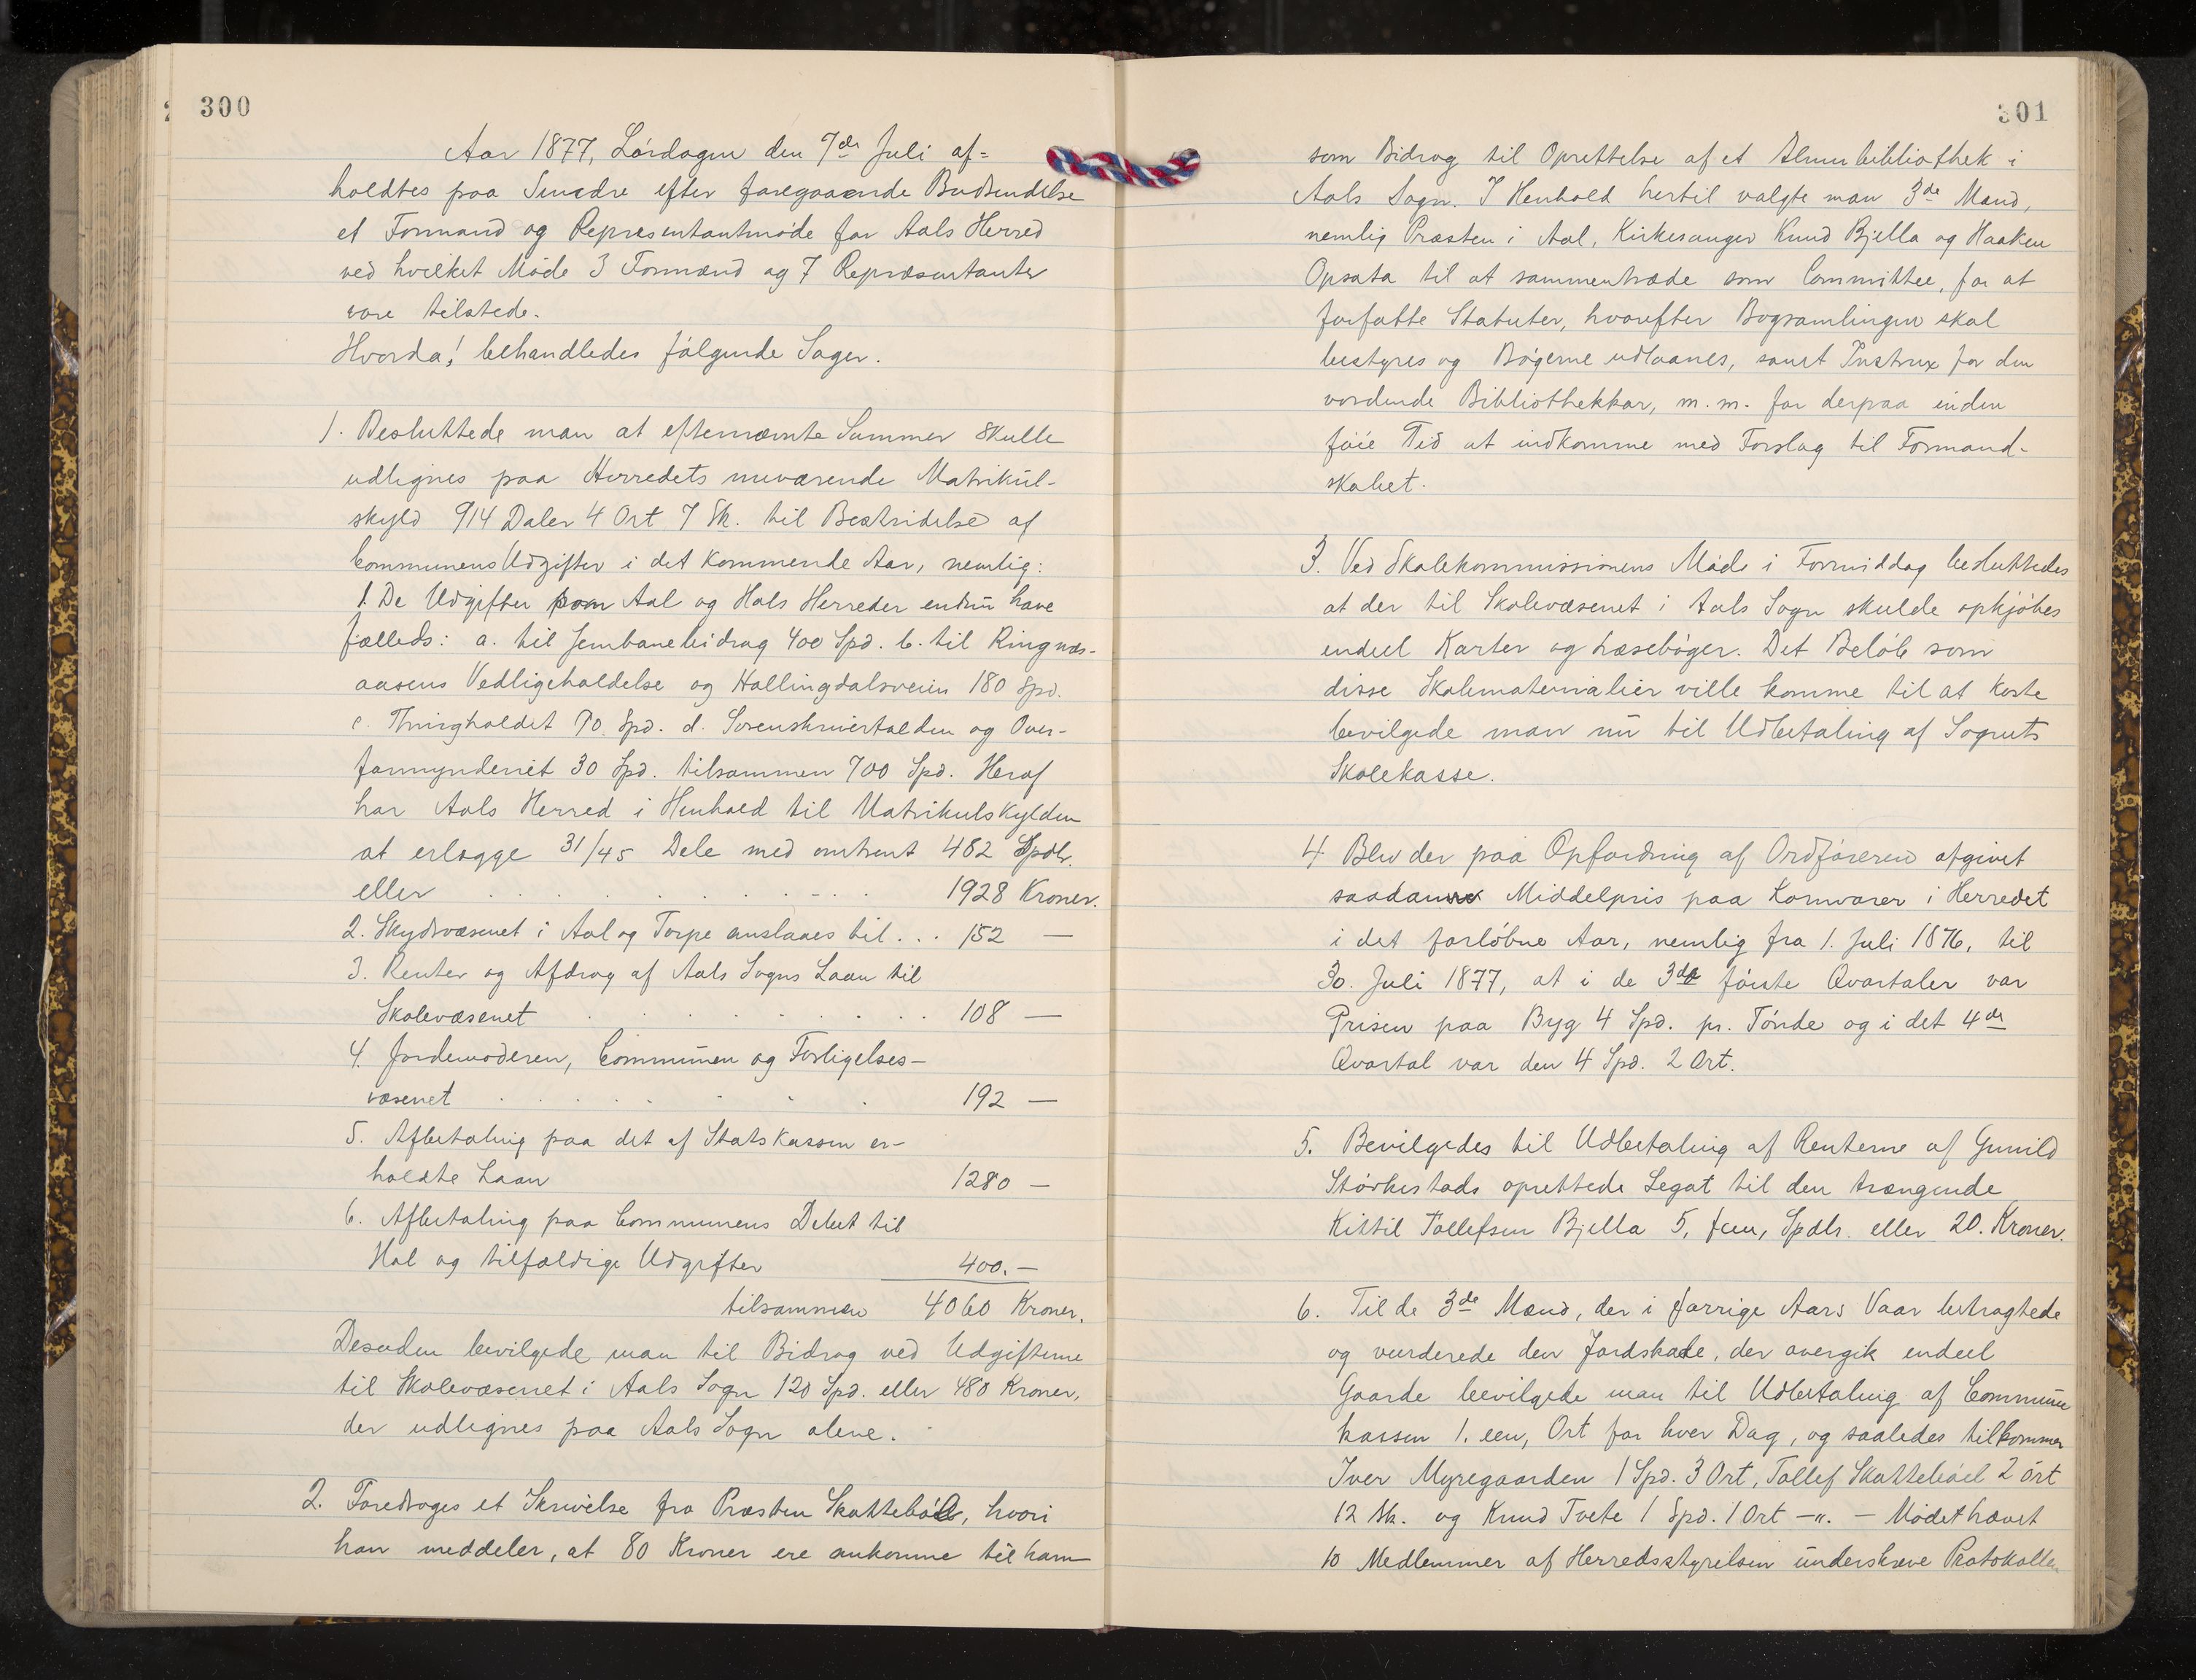 300
Aar 1877, Lördagen den 7de Juli af=
holdtes paa Sundre efter foregaaende Budsendelse
et Formand og Representantmöde for Aals Herred
ved hvilket Möde 3 Formænd og 7 Repræsentanter
vare tilstede.
Hvorda! behandledes fölgende Sager.
1. Besluttede man at efternævnte Summer skulle
udlignes paa Herredets nuværende Matrikul-
skyld 914 Daler 4 Ort 7 Sk. til Bestridelse af
Communens Udgifter i det kommende Aar, nemlig:
1. De Udgifter som Aal og Hols Herreder endnu have
fælleds: a. til Jernbanebidrag 400 Spd. b. til Ringnæs-
aasens Vedligeholdelse og Hallingdalsveien 180 Spd.
c. Thingholdet 90 Spd. d. Sorenskrivertolden og Over-
formynderiet 30 Spd. tilsammen 700 Spd. Heraf
har Aals Herred i Henhold til Matrikulskylden
at erlægge 31/45 Dele med omtrent 482 Spdlr.
eller . . . . . . . . . . 1928 Kroner.
2. Skydsvæsenet i Aal og Torpe anslaaes til . . . 152 —
3. Renter og Afdrag af Aals Sogns Laan til
Skolevæsenet . . . . . . . . . 108 —
4. Jordemoderen, Communen og Forligelses-
væsenet . . . . . . . 192 —
5. Afbetaling paa det af Statskassen er-
holdte Laan 1280 —
6. Afbetaling paa Communens Debet til
Hol og tilfældige Udgifter 400. —
tilsammen 4060 Kroner.
Desuden bevilgede man til Bidrag ved Udgifterne
til Skolevæsenet i Aals Sogn 120 Spd. eller 480 Kroner,
der udlignes paa Aals Sogn alene.
2. Foredroges et Skrivelse fra Præsten Skatteböl, hvori
han meddeler, at 80 Kroner ere ankomne til ham
301
som Bidrag til Oprettelse af et Almubibliothek i
Aals Sogn. I Henhold hertil valgte man 3de Mænd,
nemlig Præsten i Aal, Kirkesanger Knud Bjella og Haaken
Opsata til at sammentræde som Committee, for at
forfatte Statuter, hvorefter Bogsamlingen skal
bestyres og Bögerne udlaanes, samt Instrux for den
vordende Bibliothekkar, m. m. for derpaa inden
föie Tid at indkomme med Forslag til Formand-
skabet.
3. Ved Skolekommissionens Möde i Formiddag besluttedes
at der til Skolevæsenet i Aals Sogn skulde opkjöbes
endeel Karter og Læseböger. Det Belöb som
disse Skolematerialier ville komme til at koste
bevilgede man nu til Udbetaling af Sognets
Skolekasse.
4 Blev der paa Opfordring af Ordföreren afgivet
saadanne Middelpris paa Kornvarer i Herredet
i det forlöbne Aar, nemlig fra 1. Juli 1876, til
30. Juli 1877, at i de 3de förste Qvartaler var
Prisen paa Byg 4 Spd. pr. Tönde og i det 4de
Qvartal var den 4 Spd. 2 Ort.
5. Bevilgedes til Udbetaling af Renterne af Gunild
Störkestads oprettede Legat til den trængende
Kittil Tollefsen Bjella 5, fem, Spdlr. eller 20. Kroner.
6. Til de 3de Mænd, der i forrige Aars Vaar betragtede
og vurderede den Jordskade, der overgik endeel
Gaarde bevilgede man til Udbetaling af Commune
kassen 1. een, Ort for hver Dag, og saaledes tilkommer
Iver Myregaarden 1 Spd. 3 Ort, Tollef Skatteböel 2 Ort
12 Sk. og Knud Tvete 1 Spd. 1 Ort —". — Mödet hævet
10 Medlemmer af Herredsstyrelsen underskreve Protokollen